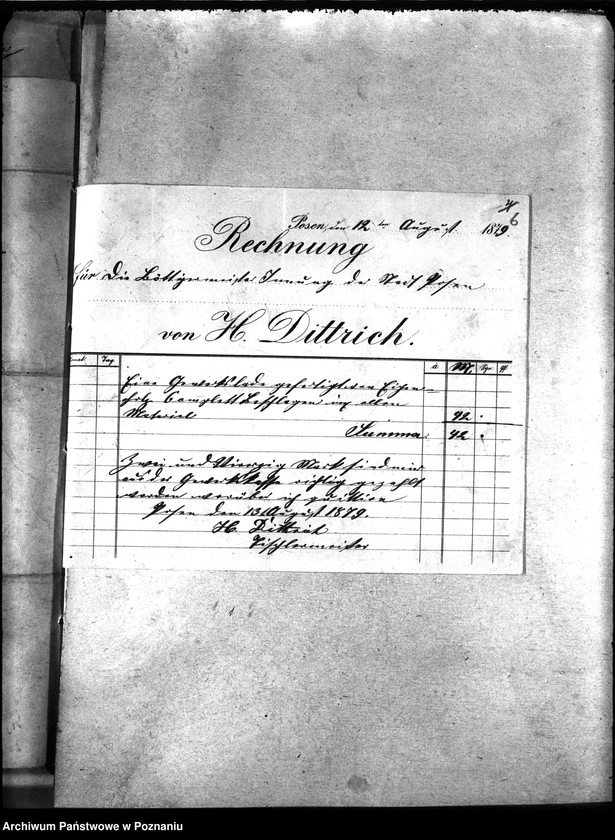 4
6
Posen, den 12ten August 1879.
Rechnung
für Die Böttchermeister Innung der Stadt Posen
von H. Dittrich.
Monat Tag à M. Pf.
Eine Gewerkslade gefertigt von Eichen-
holz Complett Beschlagen mit allen
Material 42
Summa: 42
Zwei und Vierzig Mark sind mir
aus der Gewerkskasse richtig gezahlt
worden worüber ich quittire
Posen den 13 August 1879.
H. Dittrich
Tischlermeister
Archiwum Państwowe w Poznaniu